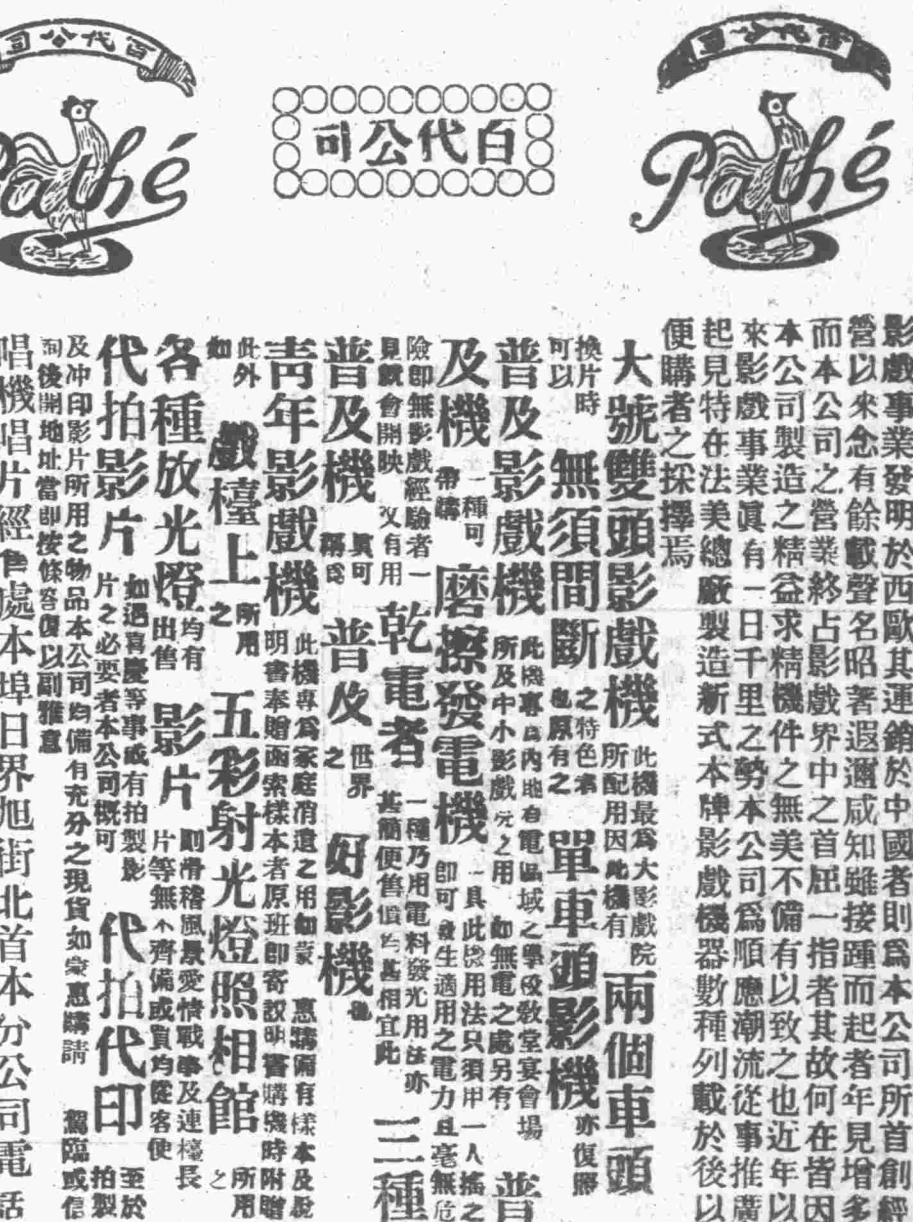 百代公司
Pathé
百代公司
百代公司
Pathé
影戲事業發明於西歐其運銷於中國者則爲本公司所首創經
營以來念有餘載聲名昭著遐邇咸知雖接踵而起者年見增多
而本公司之營業終占影戲界中之首屈一指者其故何在皆因
本公司製造之精益求精機件之無美不備有以致之也近年以
來影戲事業眞有一日千里之勢本公司爲順應潮流從事推廣
起見特在法美總廠製造新式本牌影戲機器數種列載於後以
便購者之採擇焉
大號雙頭影戲機 此機最爲大影戲院所配用因此機有 兩個車頭
換片時可以 無須間斷 之特色者也原有之 單車頭影機 亦復照
普及影戲機 此機專爲內地有電區域之學校敎堂宴會場所及中小影戲院之用如無電之處另有 普
及機 一種可帶購 磨擦發電機 一具此機用法只須用一人搖之卽可發生適用之電力且毫無危
險卽無影戲經驗者一見就會開映又有用 乾電者 一種乃用電料發光用法亦甚簡便售價亦甚相宜此 三種
普及機 眞可稱爲 普及 世界之 好影機 也
靑年影戲機 此機專爲家庭消遣之用如蒙惠購備有樣本及說明書奉贈函索樣本者原班卽寄說明書購機時附贈
此外如 戲檯上 所用之 五彩射光燈照相館 所用之
各種放光燈 均有出售 影片 則滑稽風景愛情戰爭及連檯長片等無不齊備或賣均從客便
代拍影片 如遇喜慶等事或有拍製影片之必要者本公司槪可 代拍代印 至於拍製
及冲印影片所用之物品本公司均備有充分之現貨如蒙惠購請 駕臨或信
詢後開地址當卽按條答復以副雅意
唱機唱片經售處本埠日界旭街北首本分公司電話